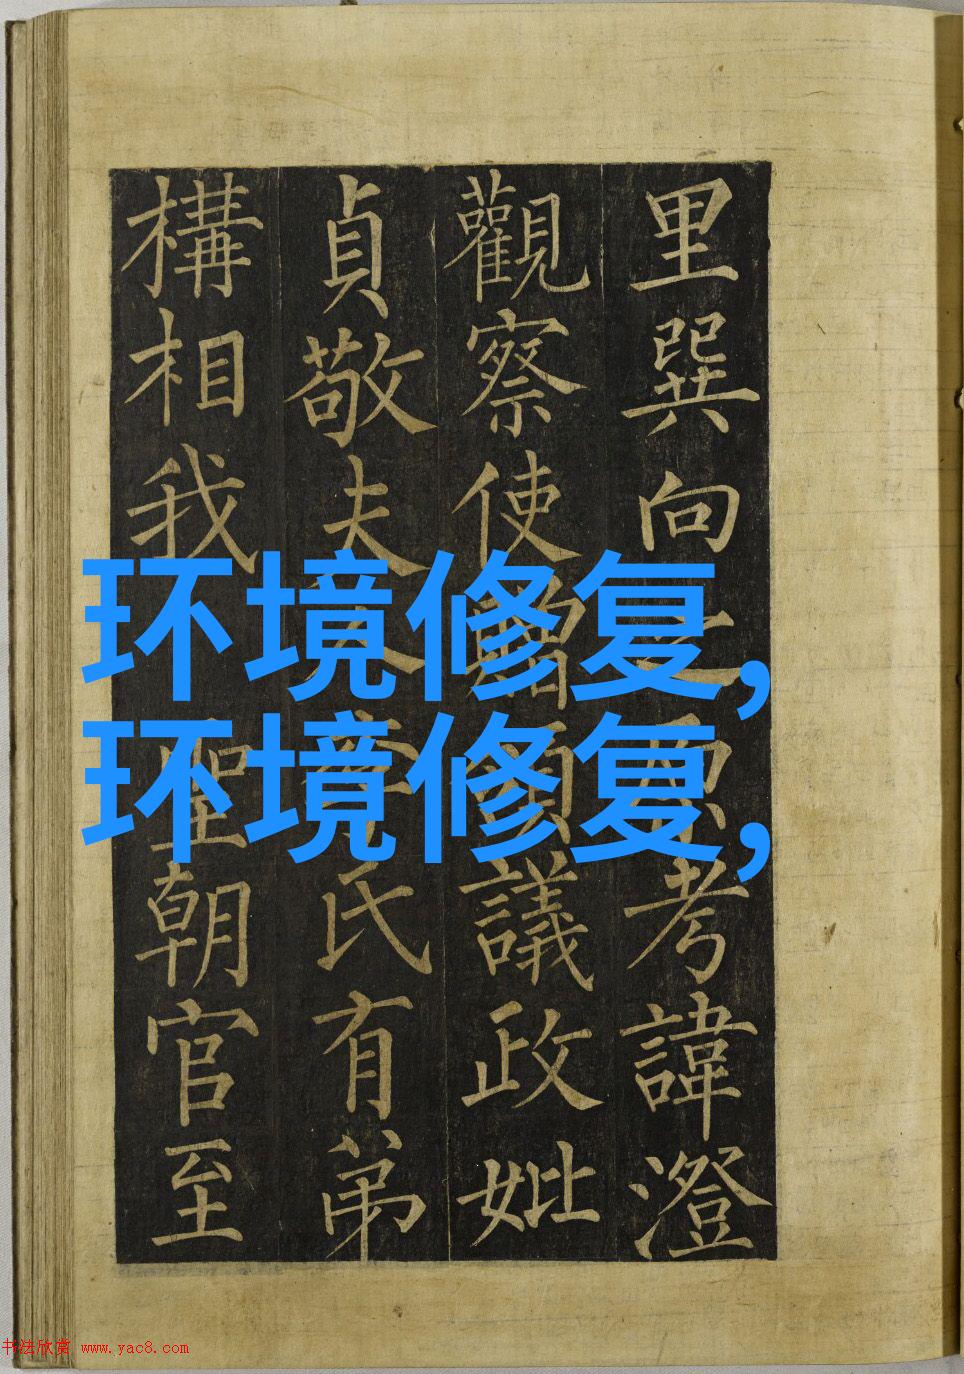 里巽向考諱澄
觀察使贈議政妣
貞敬夫人李氏有弟
構相我聖朝官至
环境修复,
环境修复,
书法欣赏 www.yac8.com